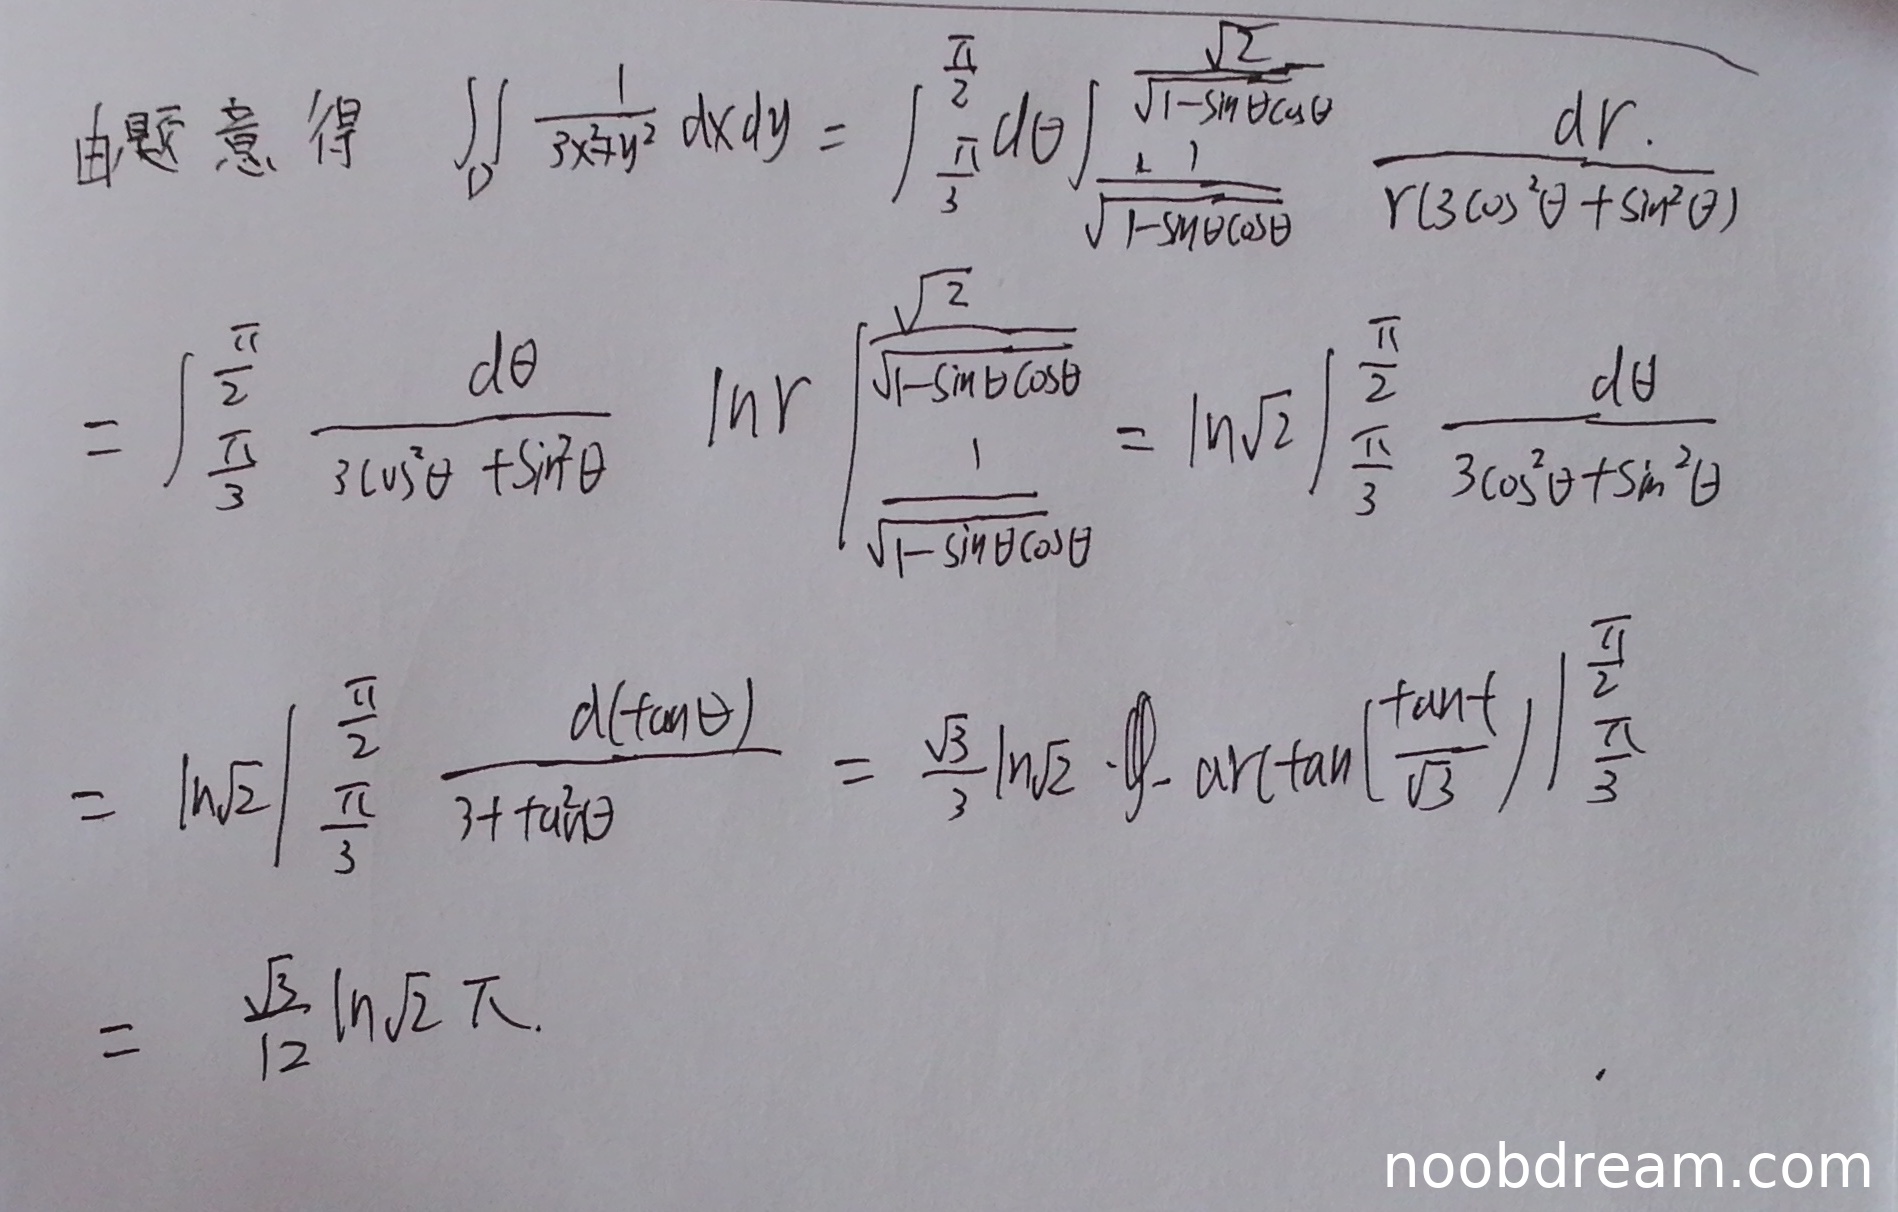 由题意得 ∬_D 1/(3x²+y²) dxdy = ∫_{π/3}^{π/2} dθ ∫_{1/√(1-sinθcosθ)}^{√2/√(1-sinθcosθ)} dr./(r(3cos²θ+sin²θ))
= ∫_{π/3}^{π/2} dθ/(3cos²θ+sin²θ) lnr |_{1/√(1-sinθcosθ)}^{√2/√(1-sinθcosθ)} = ln√2 ∫_{π/3}^{π/2} dθ/(3cos²θ+sin²θ)
= ln√2 ∫_{π/3}^{π/2} d(tanθ)/(3+tan²θ) = √3/3 ln√2 · arctan(tant/√3) |_{π/3}^{π/2}
= √3/12 ln√2 π.
noobdream.com